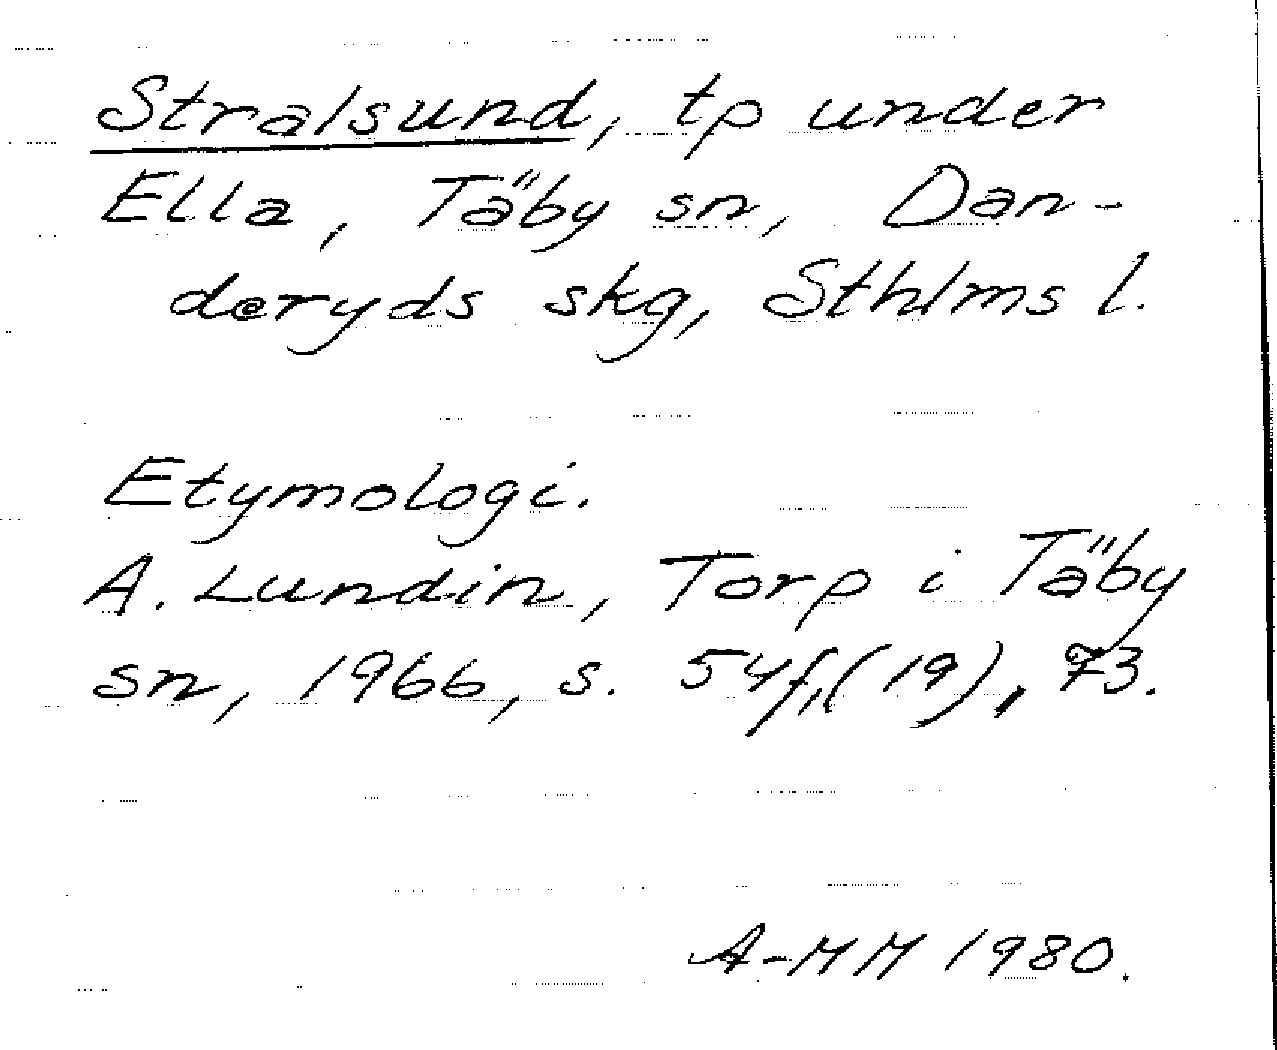 Stralsund, tp under
Ella, Täby sn, Dan-
deryds skg, Sthlms l.
Etymologi.
A. Lundin, Torp i Täby
sn, 1966, s. 54f, (19), 73.
A-MM 1980.